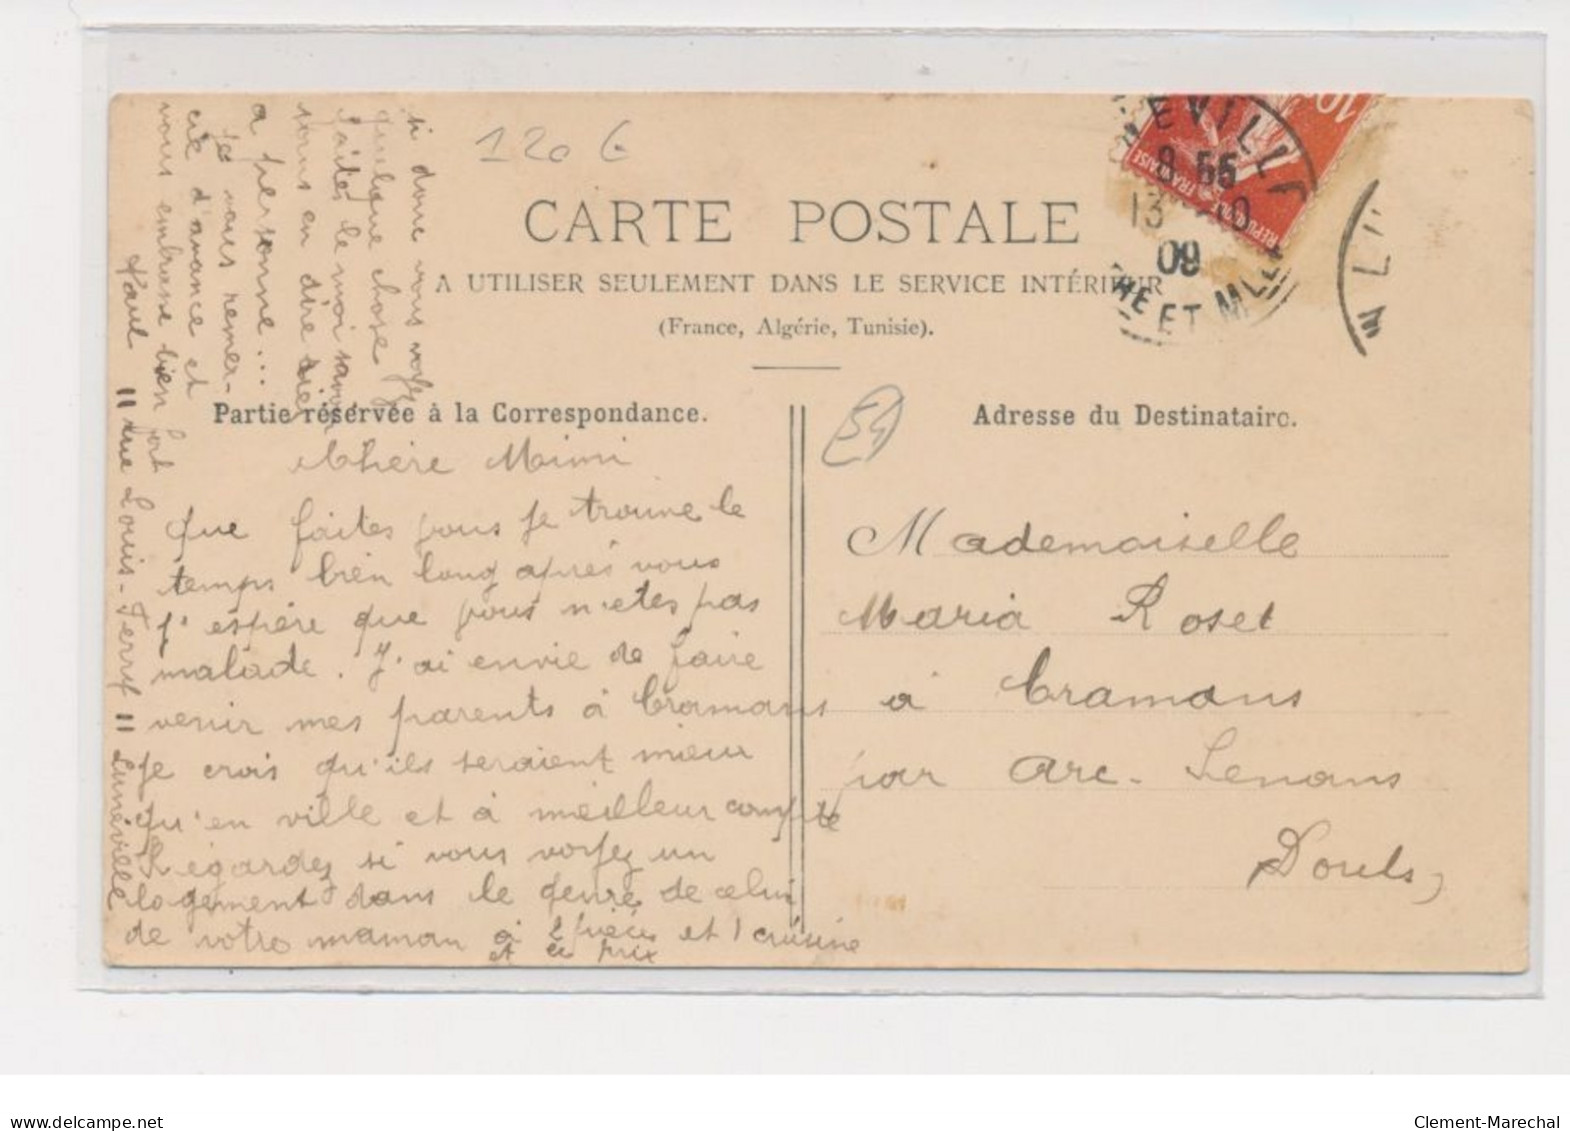 120 €
CARTE POSTALE
A UTILISER SEULEMENT DANS LE SERVICE INTÉRIEUR
(France, Algérie, Tunisie).
Partie réservée à la Correspondance.
Adresse du Destinataire.
54
NEVILLE
8 55
13 10
09
THE ET MLLE
REPUBLIQUE FRANÇAISE
10c
Chère Mimi
que faites vous je trouve le
temps bien long après vous
j'espère que vous n'etes pas
malade. J'ai envie de faire
venir mes parents à Cramans
Je crois qu'ils seraient mieux
qu'en ville et à meilleur compte
Regardez si vous voyez un
logement dans le genre de celui
de votre maman à 2 pièces et 1 cuisine
et ce prix
si donc vous voyez
quelque chose
faites le moi savoir
sans en dire rien
a personne...
Je vous remer-
cie d'avance et
vous embrasse bien fort
Paul
11 rue Louis-Ferry 11 Lunéville
Mademoiselle
Maria Roset
à Cramans
par Arc-Senans
Doubs,
www.delcampe.net
Clement-Marechal